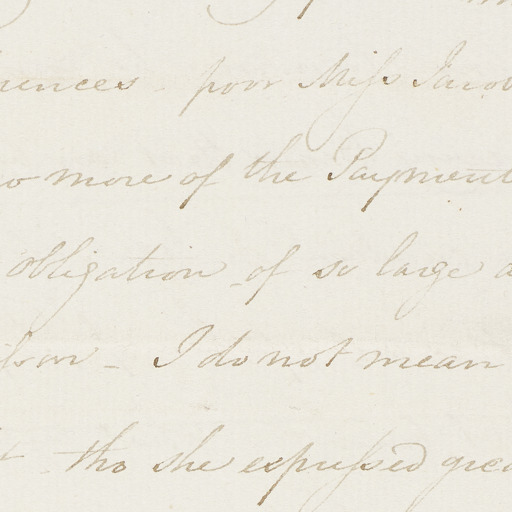 poor Miſs Jacob
no more of the Payment
obligation of so large a
I do not mean
tho she expreſsed grea